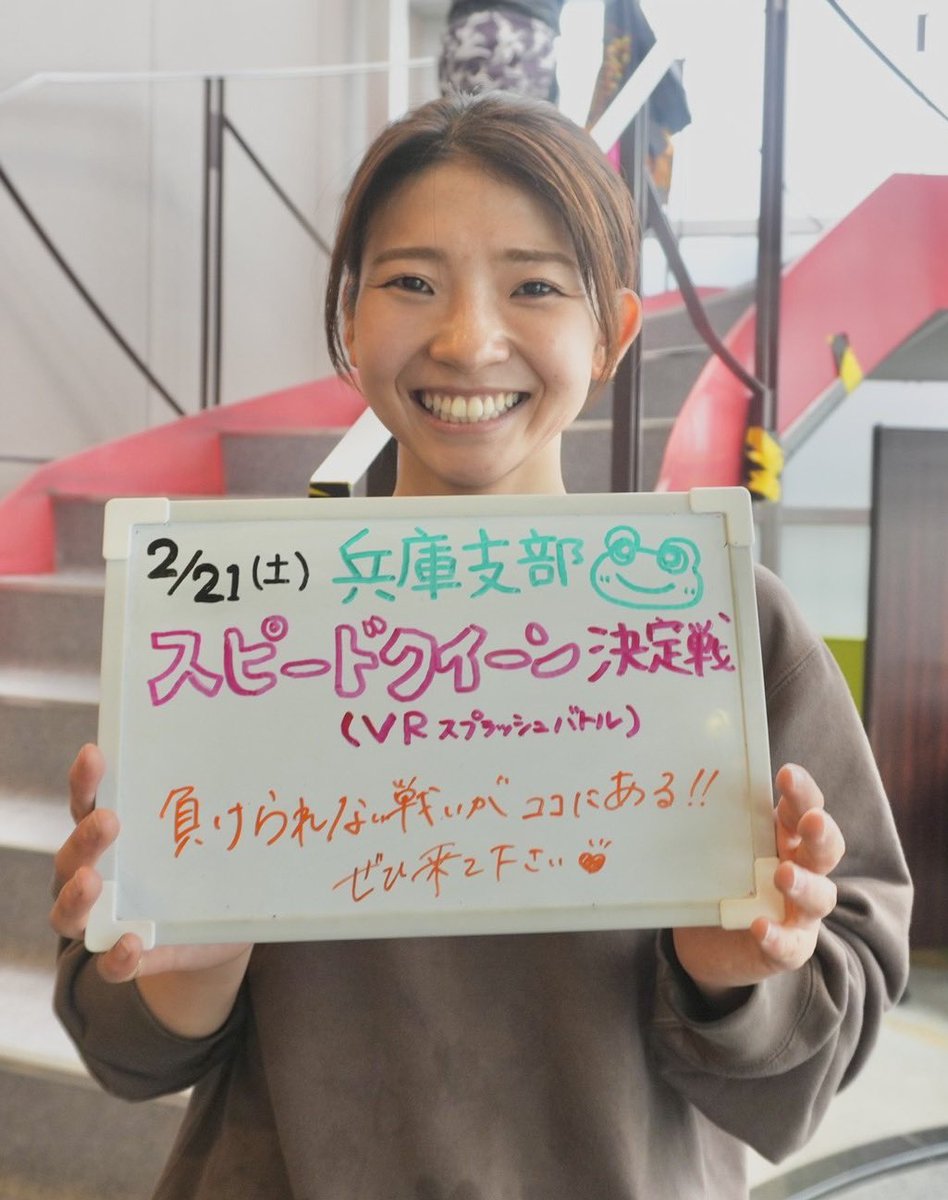 2/21(土) 兵庫支部
スピードクイーン決定戦
(VRスプラッシュバトル)
負けられない戦いがココにある!!
ぜひ来て下さい